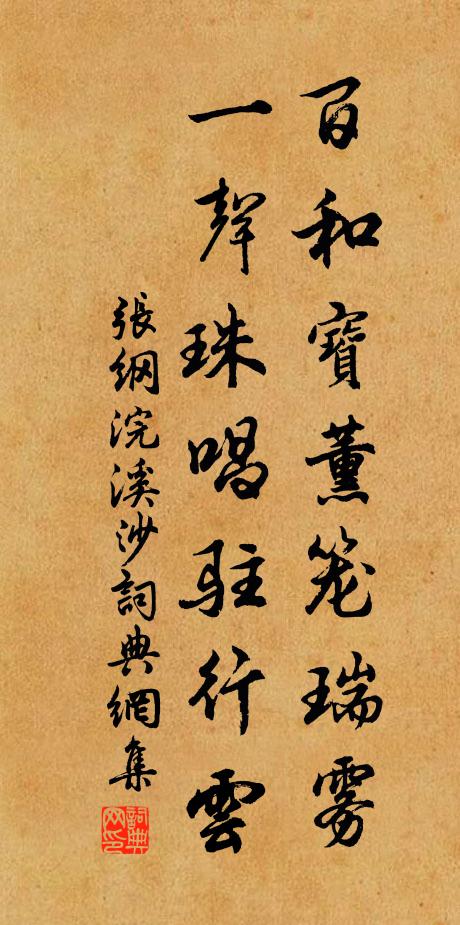 百和寶薰笼瑞雾
一聲珠唱駐行雲
張綱浣溪沙詞典網集
詞典网印